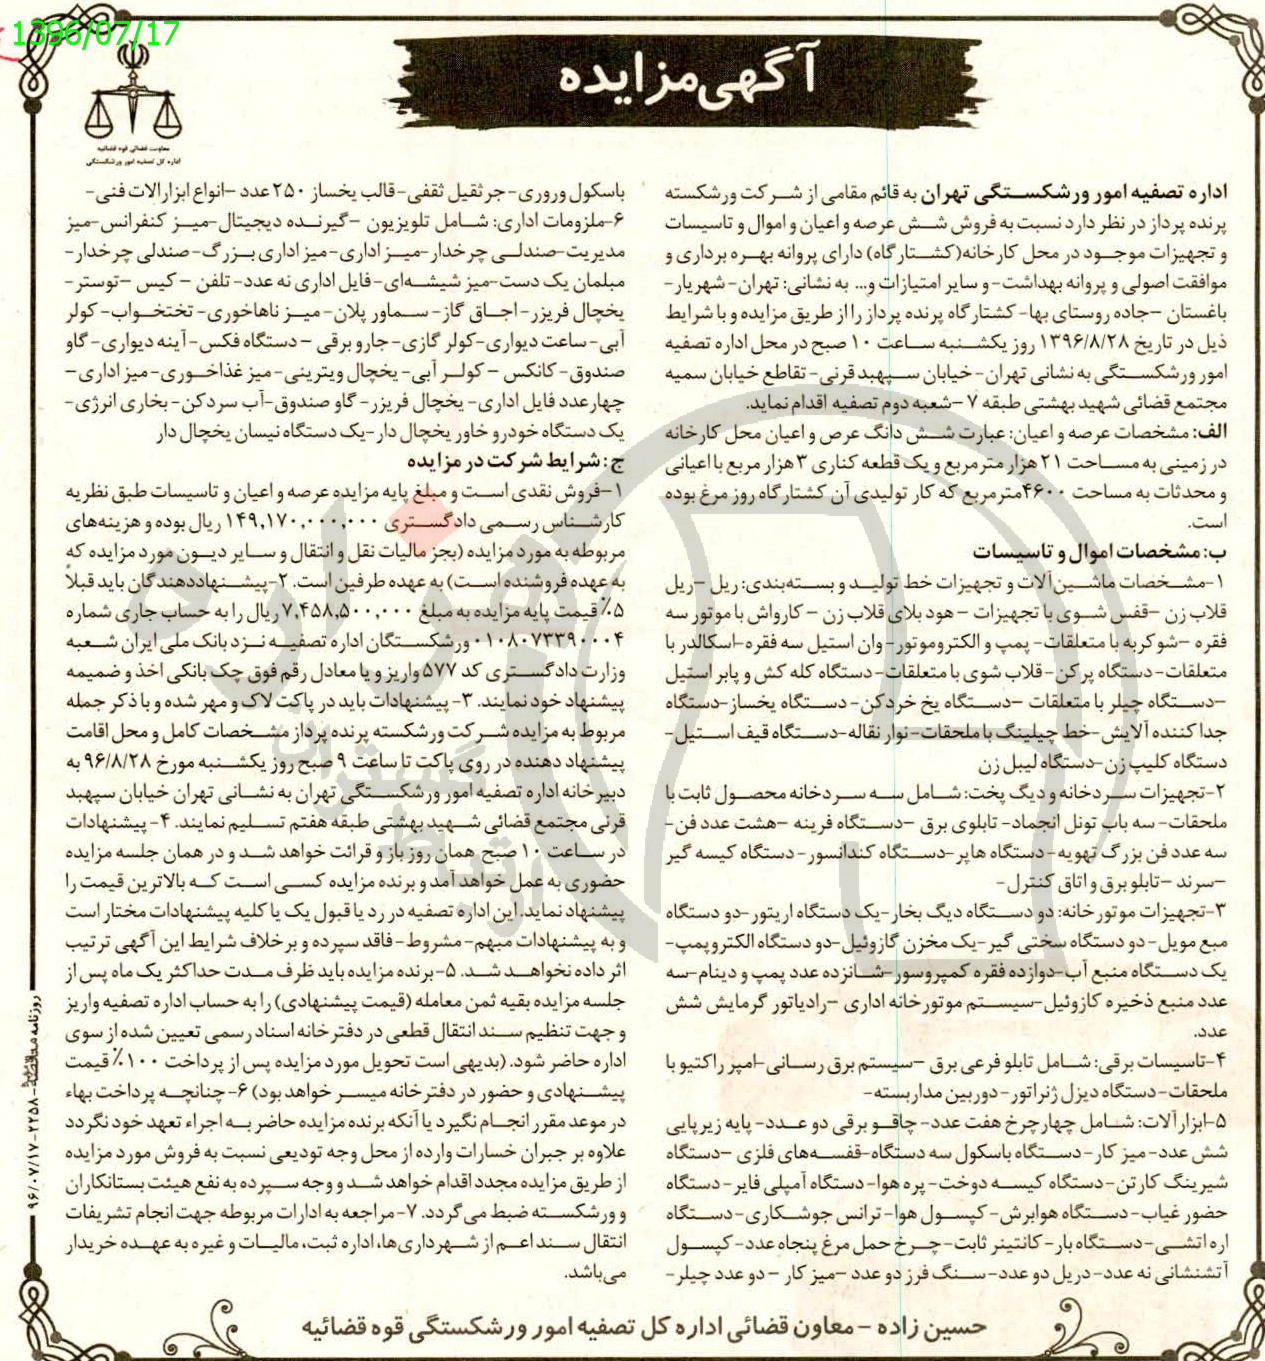 1396/07/17
آگهی مزایده
معاونت قضائی قوه قضائیه
اداره کل تصفیه امور ورشکستگی
اداره تصفیه امور ورشکستگی تهران به قائم مقامی از شرکت ورشکسته
پرنده پرداز در نظر دارد نسبت به فروش شش عرصه و اعیان و اموال و تاسیسات
و تجهیزات موجود در محل کارخانه(کشتارگاه) دارای پروانه بهره برداری و
موافقت اصولی و پروانه بهداشت- و سایر امتیازات و... به نشانی: تهران- شهریار-
باغستان –جاده روستای بها- کشتارگاه پرنده پرداز را از طریق مزایده و با شرایط
ذیل در تاریخ ۱۳۹۶/۸/۲۸ روز یکشنبه ساعت ۱۰ صبح در محل اداره تصفیه
امور ورشکستگی به نشانی تهران- خیابان سپهبد قرنی- تقاطع خیابان سمیه
مجتمع قضائی شهید بهشتی طبقه ۷ –شعبه دوم تصفیه اقدام نماید.
الف: مشخصات عرصه و اعیان: عبارت شش دانگ عرص و اعیان محل کارخانه
در زمینی به مساحت ۲۱ هزار مترمربع و یک قطعه کناری ۳ هزار مربع با اعیانی
و محدثات به مساحت ۴۶۰۰مترمربع که کار تولیدی آن کشتارگاه روز مرغ بوده
است.
ب: مشخصات اموال و تاسیسات
۱-مشخصات ماشین‌آلات و تجهیزات خط تولید و بسته‌بندی: ریل –ریل
قلاب زن –قفس شوی با تجهیزات – هود بلای قلاب زن – کارواش با موتور سه
فقره –شوکربه با متعلقات- پمپ و الکتروموتور- وان استیل سه فقره-اسکالدر با
متعلقات- دستگاه پرکن- قلاب شوی با متعلقات- دستگاه کله کش و پابر استیل
-دستگاه چیلر با متعلقات –دستگاه یخ خردکن- دستگاه یخساز-دستگاه
جدا کننده آلایش-خط چیلینگ با ملحقات- نوار نقاله-دستگاه قیف استیل-
دستگاه کلیپ زن-دستگاه لیبل زن
۲-تجهیزات سردخانه و دیگ پخت: شامل سه سردخانه محصول ثابت با
ملحقات- سه باب تونل انجماد- تابلوی برق –دستگاه فرینه –هشت عدد فن-
سه عدد فن بزرگ تهویه- دستگاه هاپر-دستگاه کندانسور- دستگاه کیسه گیر
-سرند –تابلو برق و اتاق کنترل-
۳-تجهیزات موتورخانه: دو دستگاه دیگ بخار-یک دستگاه اریتور-دو دستگاه
مبع مویل- دو دستگاه سختی گیر-یک مخزن گازوئیل-دو دستگاه الکتروپمپ-
یک دستگاه منبع آب-دوازده فقره کمپروسور-شانزده عدد پمپ و دینام-سه
عدد منبع ذخیره کازوئیل-سیستم موتورخانه اداری –رادیاتور گرمایش شش
عدد.
۴-تاسیسات برقی: شامل تابلو فرعی برق –سیستم برق رسانی-امپر راکتیو با
ملحقات- دستگاه دیزل ژنراتور- دوربین مداربسته-
۵-ابزارآلات: شامل چهارچرخ هفت عدد- چاقو برقی دو عدد- پایه زیرپایی
شش عدد- میز کار- دستگاه باسکول سه دستگاه-قفسه‌های فلزی –دستگاه
شیرینگ کارتن- دستگاه کیسه دوخت- پره هوا- دستگاه آمپلی فایر- دستگاه
حضور غیاب- دستگاه هوابرش- کپسول هوا- ترانس جوشکاری-دستگاه
اره اتشی- دستگاه بار- کانتینر ثابت- چرخ حمل مرغ پنجاه عدد- کپسول
آتشنشانی نه عدد- دریل دو عدد- سنگ فرز دو عدد –میز کار – دو عدد چیلر-
باسکول وروری- جرثقیل ثقفی- قالب یخساز ۲۵۰ عدد –انواع ابزارالات فنی-
۶-ملزومات اداری: شامل تلویزیون –گیرنده دیجیتال-میز کنفرانس-میز
مدیریت-صندلی چرخدار-میز اداری- میز اداری بزرگ- صندلی چرخدار-
مبلمان یک دست-میز شیشه‌ای- فایل اداری نه عدد- تلفن – کیس –توستر-
یخچال فریزر- اجاق گاز- سماور پلان- میز ناهاخوری- تختخواب- کولر
آبی- ساعت دیواری-کولر گازی- جارو برقی – دستگاه فکس- آینه دیواری- گاو
صندوق- کانکس – کولر آبی- یخچال ویترینی- میز غذاخوری- میز اداری-
چهارعدد فایل اداری- یخچال فریزر- گاو صندوق-آب سردکن- بخاری انرژی-
یک دستگاه خودرو خاور یخچال دار-یک دستگاه نیسان یخچال دار
ج: شرایط شرکت در مزایده
۱-فروش نقدی است و مبلغ پایه مزایده عرصه و اعیان و تاسیسات طبق نظریه
کارشناس رسمی دادگستری ۱۴۹,۱۷۰,۰۰۰,۰۰۰ ریال بوده و هزینه‌های
مربوطه به مورد مزایده (بجز مالیات نقل و انتقال و سایر دیون مورد مزایده که
به عهده فروشنده است) به عهده طرفین است. ۲-پیشنهاددهندگان باید قبلاً
۵٪ قیمت پایه مزایده به مبلغ ۷,۴۵۸,۵۰۰,۰۰۰ ریال را به حساب جاری شماره
۰۱۰۸۰۷۳۳۹۰۰۰۴ ورشکستگان اداره تصفیه نزد بانک ملی ایران شعبه
وزارت دادگستری کد ۵۷۷ واریز و یا معادل رقم فوق چک بانکی اخذ و ضمیمه
پیشنهاد خود نمایند. ۳- پیشنهادات باید در پاکت لاک و مهر شده و با ذکر جمله
مربوط به مزایده شرکت ورشکسته پرنده پرداز مشخصات کامل و محل اقامت
پیشنهاد دهنده در روی پاکت تا ساعت ۹ صبح روز یکشنبه مورخ ۹۶/۸/۲۸ به
دبیرخانه اداره تصفیه امور ورشکستگی تهران به نشانی تهران خیابان سپهبد
قرنی مجتمع قضائی شهید بهشتی طبقه هفتم تسلیم نمایند. ۴- پیشنهادات
در ساعت ۱۰ صبح همان روز باز و قرائت خواهد شد و در همان جلسه مزایده
حضوری به عمل خواهد آمد و برنده مزایده کسی است که بالاترین قیمت را
پیشنهاد نماید. این اداره تصفیه در رد یا قبول یک یا کلیه پیشنهادات مختار است
و به پیشنهادات مبهم- مشروط- فاقد سپرده و برخلاف شرایط این آگهی ترتیب
اثر داده نخواهد شد. ۵- برنده مزایده باید ظرف مدت حداکثر یک ماه پس از
جلسه مزایده بقیه ثمن معامله (قیمت پیشنهادی) را به حساب اداره تصفیه واریز
و جهت تنظیم سند انتقال قطعی در دفترخانه اسناد رسمی تعیین شده از سوی
اداره حاضر شود. (بدیهی است تحویل مورد مزایده پس از پرداخت ۱۰۰٪ قیمت
پیشنهادی و حضور در دفترخانه میسر خواهد بود) ۶- چنانچه پرداخت بهاء
در موعد مقرر انجام نگیرد یا آنکه برنده مزایده حاضر به اجراء تعهد خود نگردد
علاوه بر جبران خسارات وارده از محل وجه تودیعی نسبت به فروش مورد مزایده
از طریق مزایده مجدد اقدام خواهد شد و وجه سپرده به نفع هیئت بستانکاران
و ورشکسته ضبط می گردد. ۷- مراجعه به ادارات مربوطه جهت انجام تشریفات
انتقال سند اعم از شهرداری‌ها، اداره ثبت، مالیات و غیره به عهده خریدار
می‌باشد.
حسین زاده – معاون قضائی اداره کل تصفیه امور ورشکستگی قوه قضائیه
روزنامه مناقصه- ۲۲۵۸- ۹۶/۰۷/۱۷